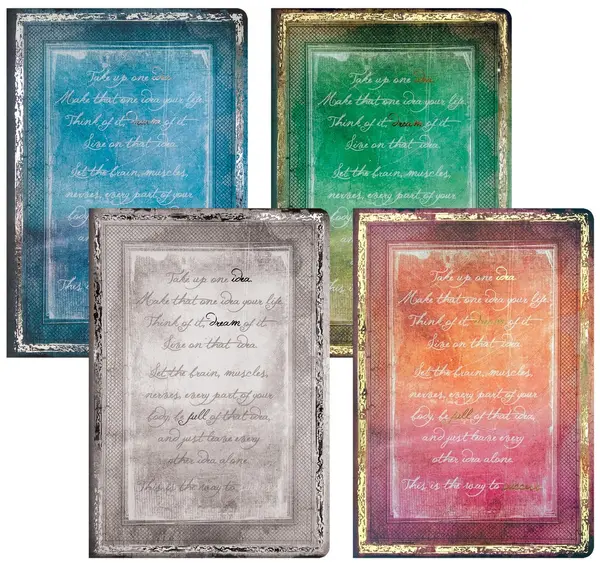 Take up one idea
Make that one idea your life
Think of it, dream of it
Live on that idea
Let the brain, muscles,
nerves, every part of your
This is
Take up one idea
Make that one idea your life
Think of it, dream of it
Live on that idea
Let the brain, muscles,
nerves, every part of your
Take up one idea
Make that one idea your life
Think of it, dream of it
Live on that idea
Let the brain, muscles,
nerves, every part of your
body, be full of that idea,
and just leave every
other idea alone
This is the way to
Take up one idea
Make that one idea your life
Think of it, dream of it
Live on that idea
Let the brain, muscles,
nerves, every part of your
body, be full of that idea,
and just leave every
other idea alone
This is the way to success